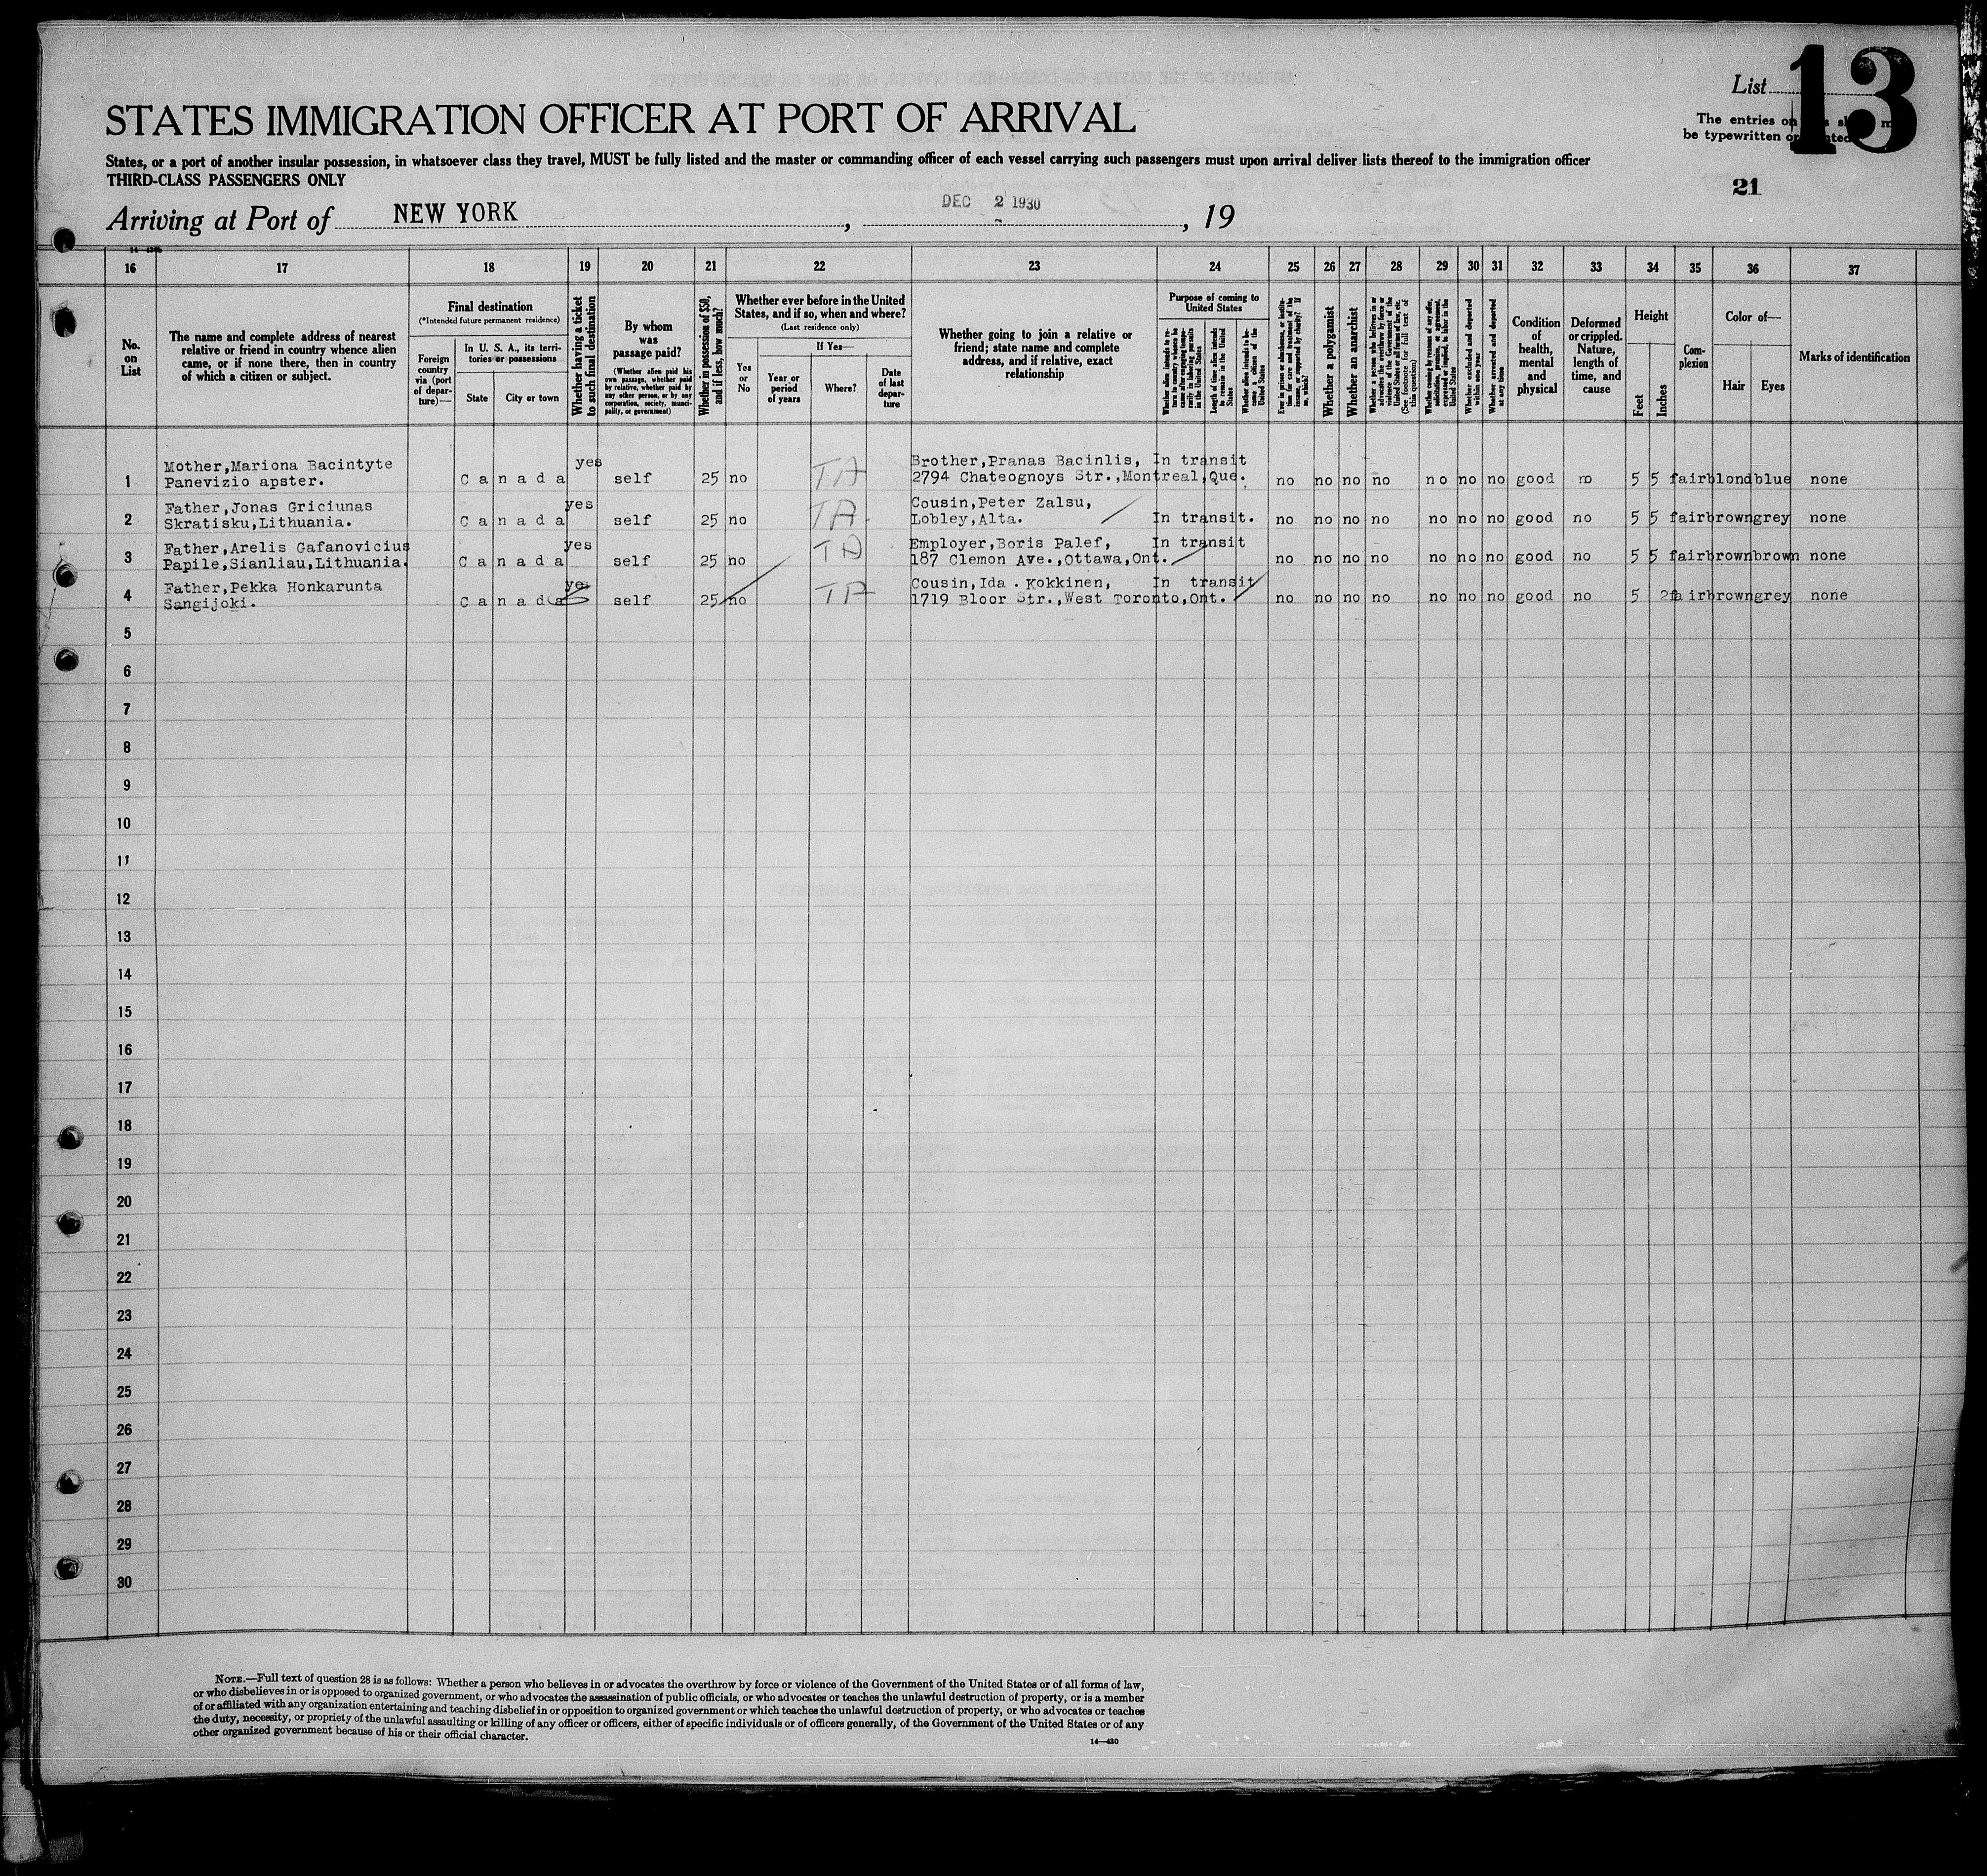 List 13
The entries on
be typewritten or
STATES IMMIGRATION OFFICER AT PORT OF ARRIVAL
States, or a port of another insular possession, in whatsoever class they travel, MUST be fully listed and the master or commanding officer of each vessel carrying such passengers must upon arrival deliver lists thereof to the immigration officer
THIRD-CLASS PASSENGERS ONLY
21
Arriving at Port of NEW YORK, DEC 2 1930, 19
16 17 18 19 20 21 22 23 24 25 26 27 28 29 30 31 32 33 34 35 36 37
No.
on
List
The name and complete address of nearest
relative or friend in country whence alien
came, or if none there, then in country
of which a citizen or subject.
Final destination
(*Intended future permanent residence)
Foreign
country
via (port
of depar-
ture)—
In U. S. A., its terri-
tories or possessions
State
City or town
Whether having a ticket
to such final destination
By whom
was
passage paid?
(Whether alien paid his
own passage, whether paid
by relative, whether paid by
any other person, or by any
corporation, society, munici-
pality, or government)
Whether in possession of $50,
and if less, how much?
Whether ever before in the United
States, and if so, when and where?
(Last residence only)
Yes
or
No
If Yes—
Year or
period
of years
Where?
Date
of last
depar-
ture
Whether going to join a relative or
friend; state name and complete
address, and if relative, exact
relationship
Purpose of coming to
United States
Whether alien intends to re-
turn to country whence he
came after engaging tempo-
rarily in laboring pursuits
in the United States
Length of time alien intends
to remain in the United
States
Whether alien intends to be-
come a citizen of the
United States
Ever in prison or almshouse, or institu-
tion for care and treatment of the
insane, or supported by charity? If
so, which?
Whether a polygamist
Whether an anarchist
Whether a person who believes in or
advocates the overthrow by force or
violence of the Government of the
United States or all forms of law, etc.
(See footnote for full text of
this question)
Whether coming by reason of any offer,
solicitation, promise, or agreement,
expressed or implied, to labor in the
United States
Whether excluded and deported
within one year
Whether arrested and deported
at any time
Condition
of
health,
mental
and
physical
Deformed
or crippled.
Nature,
length of
time, and
cause
Height
Feet
Inches
Com-
plexion
Color of—
Hair
Eyes
Marks of identification
Mother,Mariona Bacintyte yes Brother,Pranas Bacinlis, In transit
1 Panevizio apster. Canada self 25 no TA 2794 Chateognoys Str.,Montreal,Que. no no no no no no no good no 5 5 fair blond blue none
Father,Jonas Griciunas yes Cousin,Peter Zalsu,
2 Skratisku,Lithuania. Canada self 25 no TA Lobley,Alta. In transit. no no no no no no no good no 5 5 fair brown grey none
Father,Arelis Gafanovicius yes Employer,Boris Palef, In transit
3 Papile,Sianliau,Lithuania. Canada self 25 no TA 187 Clemon Ave.,Ottawa,Ont. no no no no no no no good no 5 5 fair brown brown none
Father,Pekka Honkarunta yes Cousin,Ida . Kokkinen, In transit
4 Sangijoki. Canada self 25 no TA 1719 Bloor Str.,West Toronto,Ont. no no no no no no no good no 5 2 fair brown grey none
5
6
7
8
9
10
11
12
13
14
15
16
17
18
19
20
21
22
23
24
25
26
27
28
29
30
NOTE.—Full text of question 28 is as follows: Whether a person who believes in or advocates the overthrow by force or violence of the Government of the United States or of all forms of law,
or who disbelieves in or is opposed to organized government, or who advocates the assassination of public officials, or who advocates or teaches the unlawful destruction of property, or is a member
of or affiliated with any organization entertaining and teaching disbelief in or opposition to organized government or which teaches the unlawful destruction of property, or who advocates or teaches
the duty, necessity, or propriety of the unlawful assaulting or killing of any officer or officers, either of specific individuals or of officers generally, of the Government of the United States or of any
other organized government because of his or their official character.
14—430